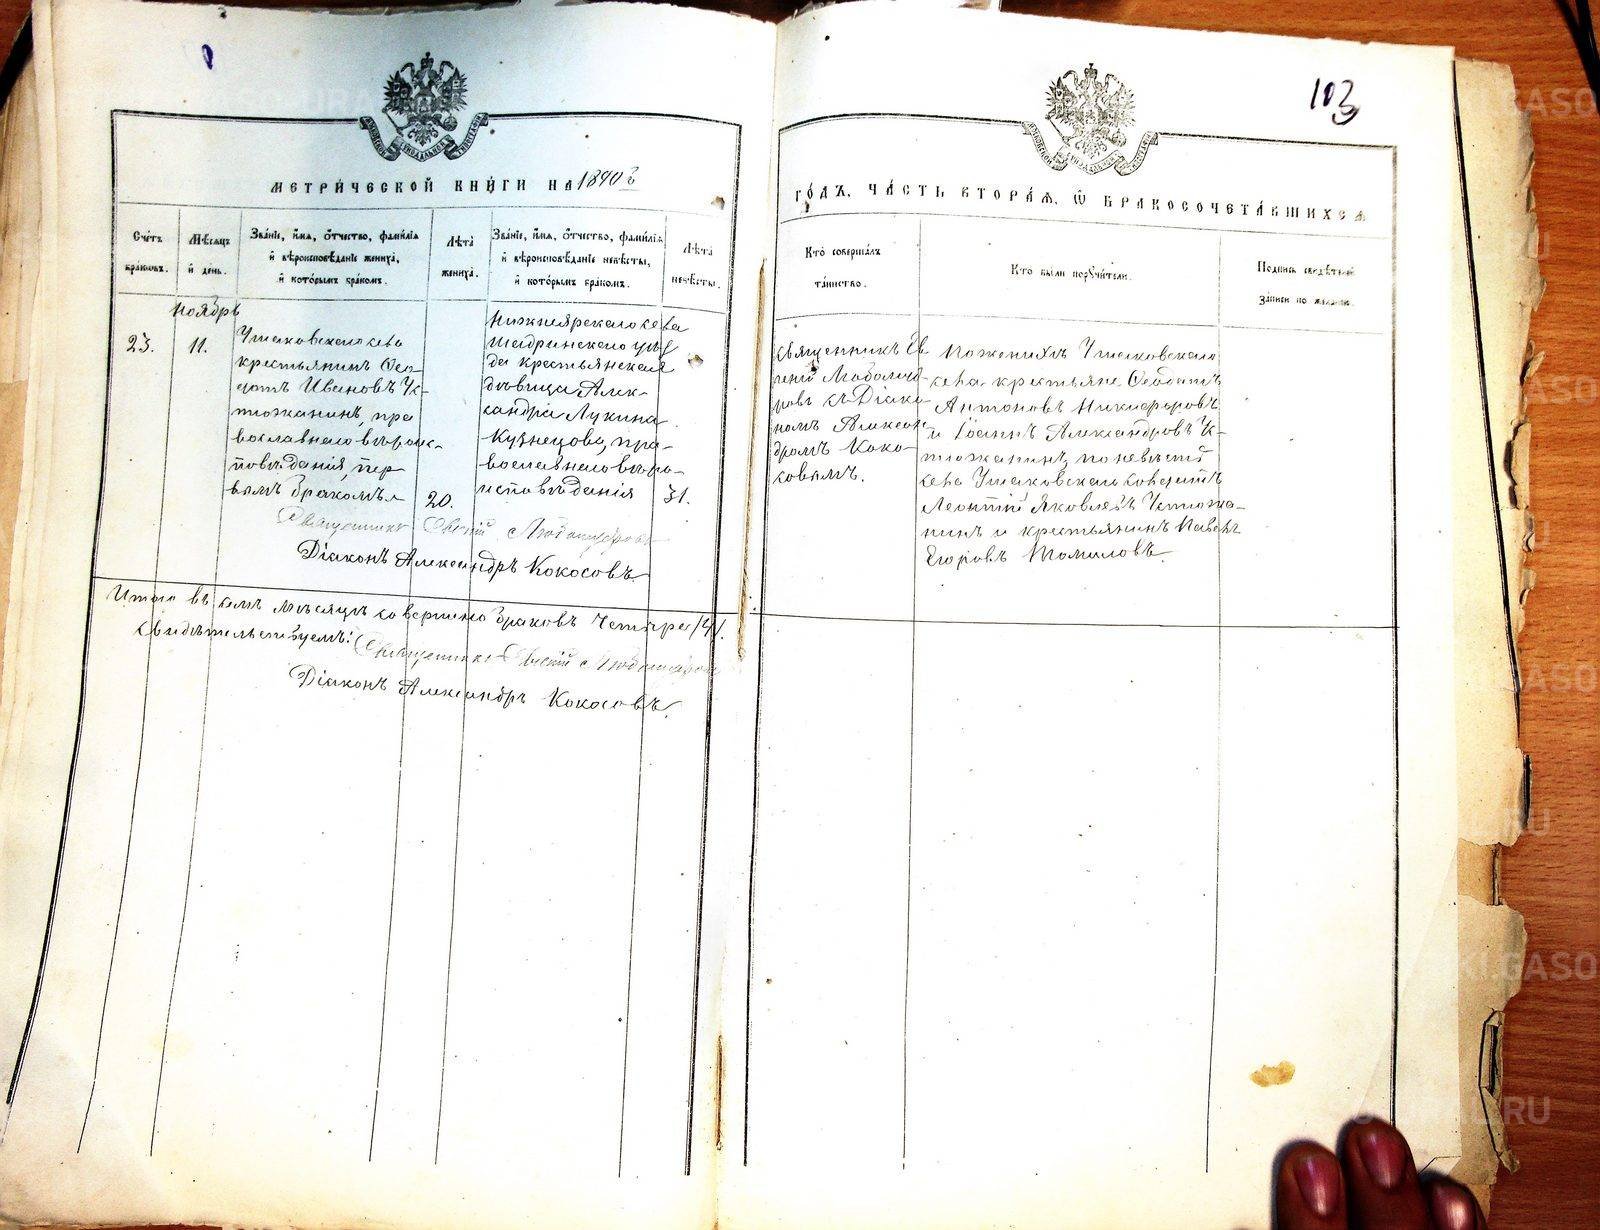 103
МОСКОВСКОЙ СИНОДАЛЬНОЙ ТИПОГРАФІИ
МОСКОВСКОЙ СИНОДАЛЬНОЙ ТИПОГРАФІИ
МЕТРИ́ЧЕСКОЙ КНИ́ГИ НА 1890 й
ГО́ДЪ, ЧА́СТЬ ВТОРА́Я, Ѡ҆ БРАКОСОЧЕТА́ВШИХСЯ
Сче́тъ браковъ.
Мѣ́сяцъ и҆ де́нь.
Зва́нїе, и҆́мя, ѻ҆́тчество, фами́лїя и҆ вѣроисповѣ́данїе жениха̀, и҆ кото́рымъ бра́комъ.
Лѣта̀ жениха̀.
Зва́нїе, и҆́мя, ѻ҆́тчество, фами́лїя и҆ вѣроисповѣ́данїе невѣ́сты, и҆ кото́рымъ бра́комъ.
Лѣта̀ невѣ́сты.
Кто̀ соверша́лъ та́инство.
Кто̀ бы́ли порꙋчи́тели.
По́дпись свидѣ́телей за́писи по жела́нїю.
ноябрь
23.
11.
Ушаковскаго села
крестьянинъ Ѳео-
дотъ Ивановъ Ус-
тюжанинъ, пра
вославнаго вѣроис-
повѣданія, пер-
вымъ бракомъ.
20.
Нижнеярскаго села
Шадринскаго уѣз
да крестьянская
дѣвица Алек-
сандра Лукина
Кузнецова, пра-
вославнаго вѣро-
исповѣданія
31.
Священникъ Ев
геній
съ Діако
номъ Алексан
дромъ Коко-
совымъ.
По женихѣ Ушаковскаго
села крестьяне Ѳеодотъ
Антоновъ Никифоровъ
и Іоаннъ Александровъ Ус-
тюжанинъ, по невѣстѣ
села Ушаковскаго
Леонтій Яковлевъ Устюжа-
нинъ и крестьянинъ Павелъ
Егоровъ Томиловъ
Священникъ Евгеній
Діаконъ Александръ Кокосовъ
Итого въ семъ мѣсяцѣ совершено браковъ Четыре /4/.
Свидѣтельствуемъ: Священникъ Евгеній
Діаконъ Александръ Кокосовъ.